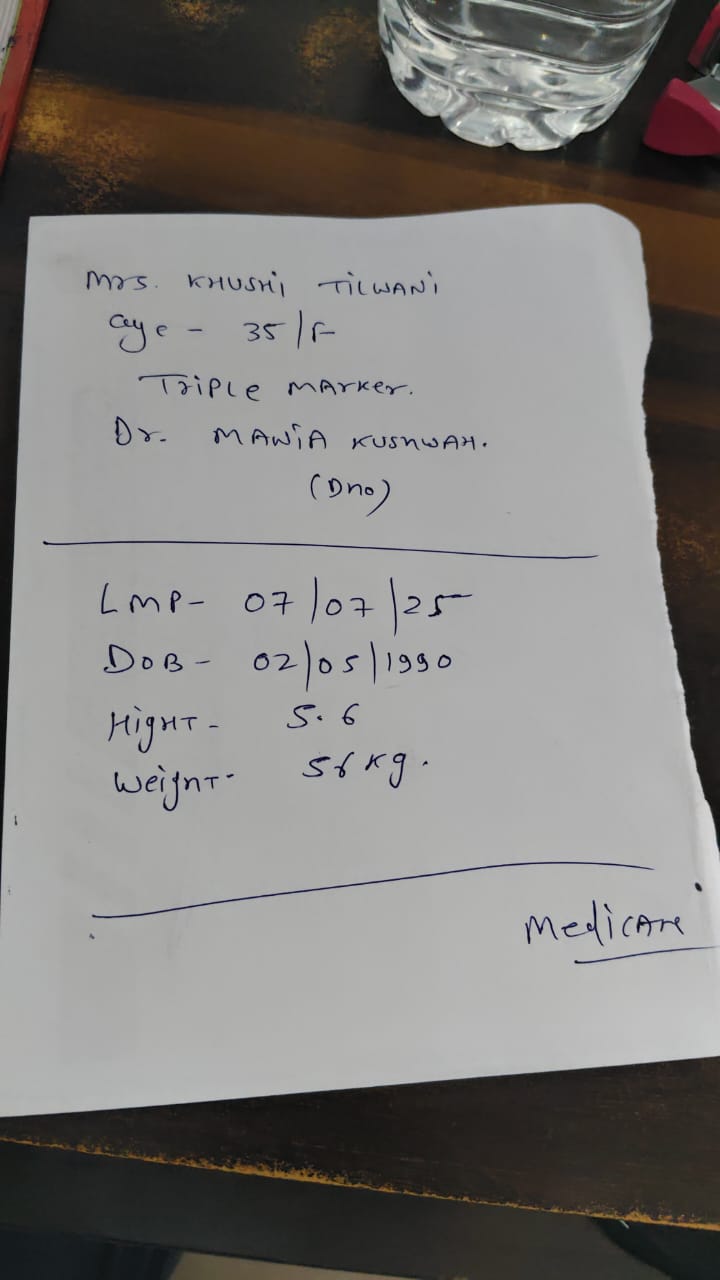 Mrs. KHUSHi TiLWANi
age - 35/F
TriPLe MArker.
Dr. MAWiA KUSHWAH.
(DnO)
LMP- 07/07/25
DOB- 02/05/1990
HigHT- 5.6
Weight- 56 kg.
MedicAre